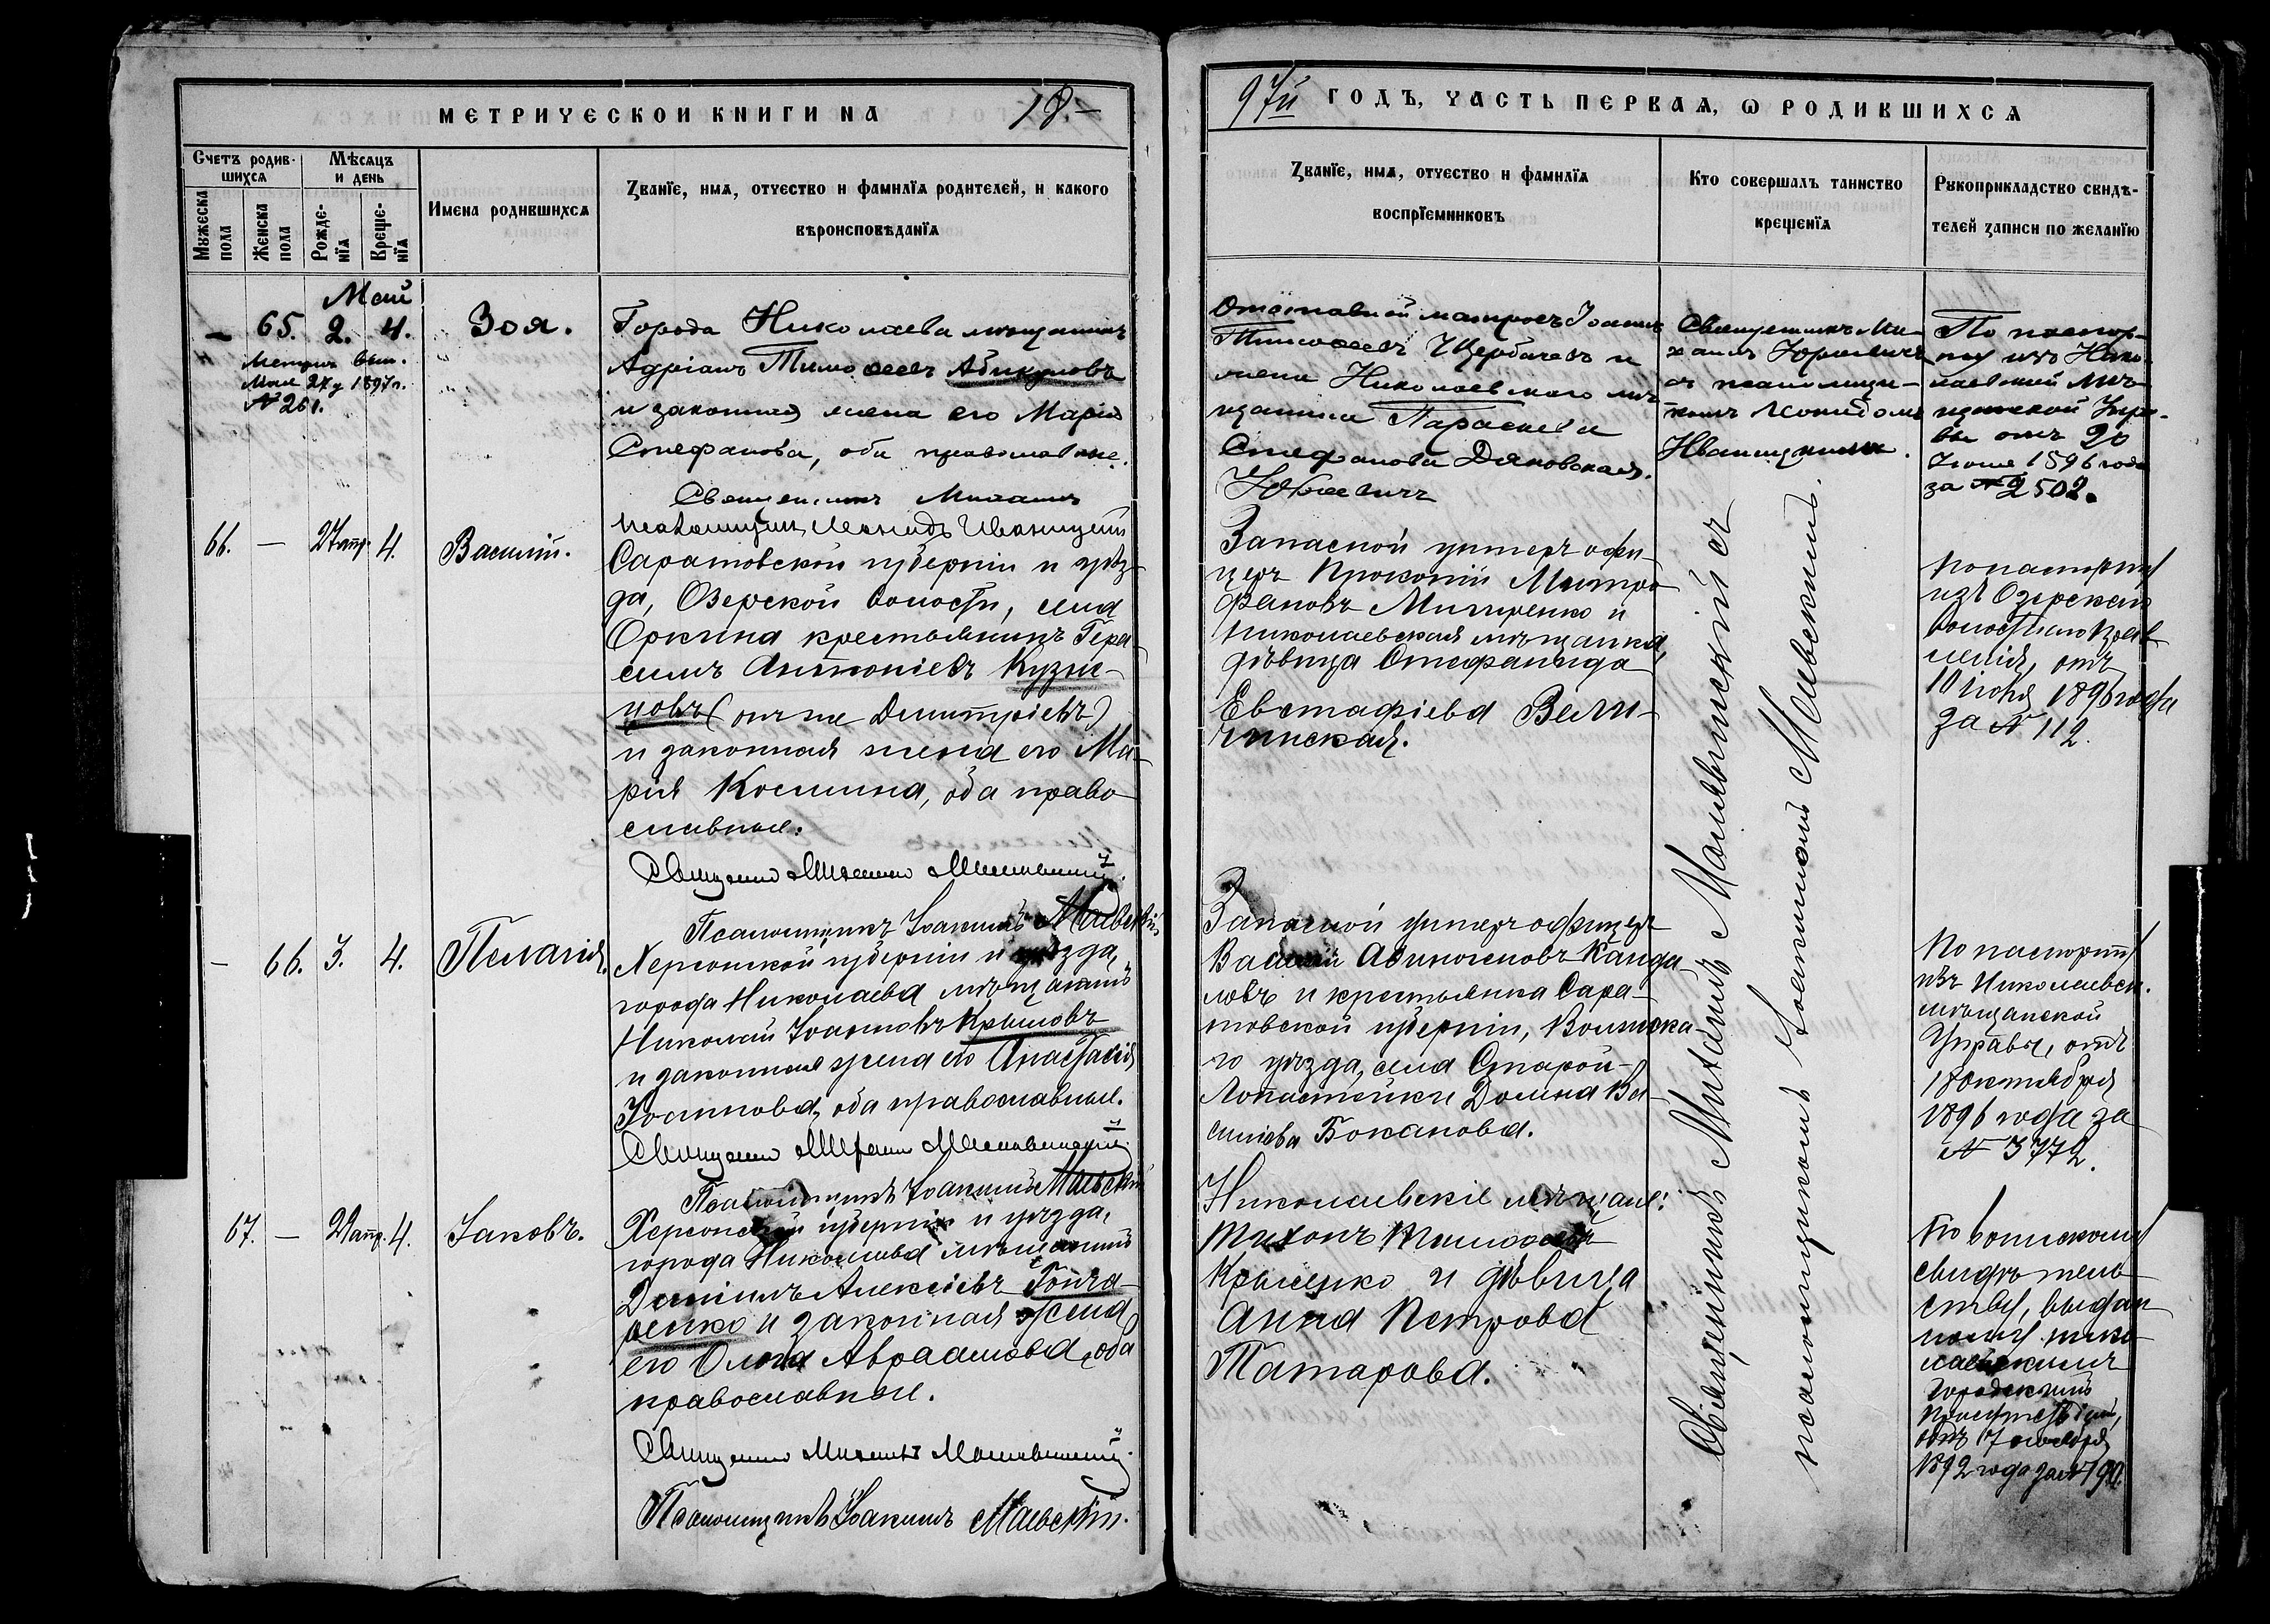 МЕТРИЧЕСКОИ КНИГИ НА 18.–
97й ГОДЪ, ЧАСТЬ ПЕРВАЯ, Ѡ РОДИВШИХСЯ
Счетъ родив-
шихся
Мѣсяцъ
и день
Мужеска
пола
Женска
пола
Рожде-
нїя
Креще-
нїя
Имена родившихся
Званїе, имя, отчество и фамилїя родителей, и какого
вѣроисповѣданїя
Званїе, имя, отчество и фамилїя
воспрїемниковъ
Кто совершалъ таинство
крещенїя
Рукоприкладство свидѣ-
телей записи по желанїю
Май
– 65. 2. 4. Зоя.
Метрич. вып.
Мая 27 д 1897 г.
№ 261.
Города Николаева мѣщанинъ
Адріанъ Тимоѳеевъ Абикуловъ
и законная жена его Марія
Стефанова, оба православные.
Священникъ Михаилъ
Псаломщикъ Леонидъ Иваницкій
Отставной матросъ Іоаннъ
Тимоѳеевъ Щербачевъ и
жена Николаевского мѣ-
щанина Параскева
Стефанова Дяковская.
Юркевичъ
Священникъ Ми-
хаилъ Юркевичъ
съ псаломщи-
комъ Леонидомъ
Иваницкимъ.
По паспор-
ту изъ Нико-
лаевской мѣ-
щанской Упра-
вы отъ 20
Іюня 1896 года
за № 2502.
66. – 27 апр. 4. Василій.
Саратовской губерніи и уѣз-
да, Озерской волости, села
Оркина крестьянинъ Гера-
симъ Антоніевъ Кузне-
цовъ (онъ же Димитріевъ)
и законная жена его Ма-
рія Космина, оба право-
славные.
Священникъ Михаилъ
Псаломщикъ Іоакимъ Маевскій
Запасной унтеръ офи-
церъ Прокопій Митро-
фановъ и
Николаевская мѣщанка,
дѣвица Стефанида
Евстафіева Вели-
чинская.
По паспорту
изъ Озерскаго
волостнаго прав-
ленія, отъ
10 1896 года
за № 112.
– 66. 3. 4. Пелагія.
Херсонской губерніи и уѣзда,
города Николаева мѣщанинъ
Николай Іоанновъ Крыловъ
и законная жена его Анастасія
Іоаннова, оба православные.
Священникъ Михаилъ
Псаломщикъ Іоакимъ Маевскій
Запасной унтеръ офицеръ
Василій Авиногеновъ Канда-
ловъ и крестьянка Сара-
товской губерніи, Вольска-
го уѣзда, села Старой-
Лопастейки Домна Ва-
силіева Боканова.
По паспорту
изъ Николаевск.
мѣщанской
Управы, отъ
18 октября
1896 года за
№ 3772.
67. – 21 апр. 4. Іаковъ.
Херсонской губерніи и уѣзда,
города Николаева мѣщанинъ
Даніилъ Алексіевъ Гонча-
ренко и законная жена
его Ольга Авраамова, оба
православные.
Священникъ Михаилъ
Псаломщикъ Іоакимъ Маевскій.
Николаевскіе мѣщане:
Тихонъ Тимоѳеевъ
Крыщенко и дѣвица
Анна Петрова
Татарова.
По воинскому
свидѣтель-
ству, выдан-
ному нико-
лаевскимъ
городскимъ
присутствіемъ,
отъ 17 января
1892 года за №
Священникъ Михаилъ съ
псаломщикомъ Іоакимомъ Маевскимъ.